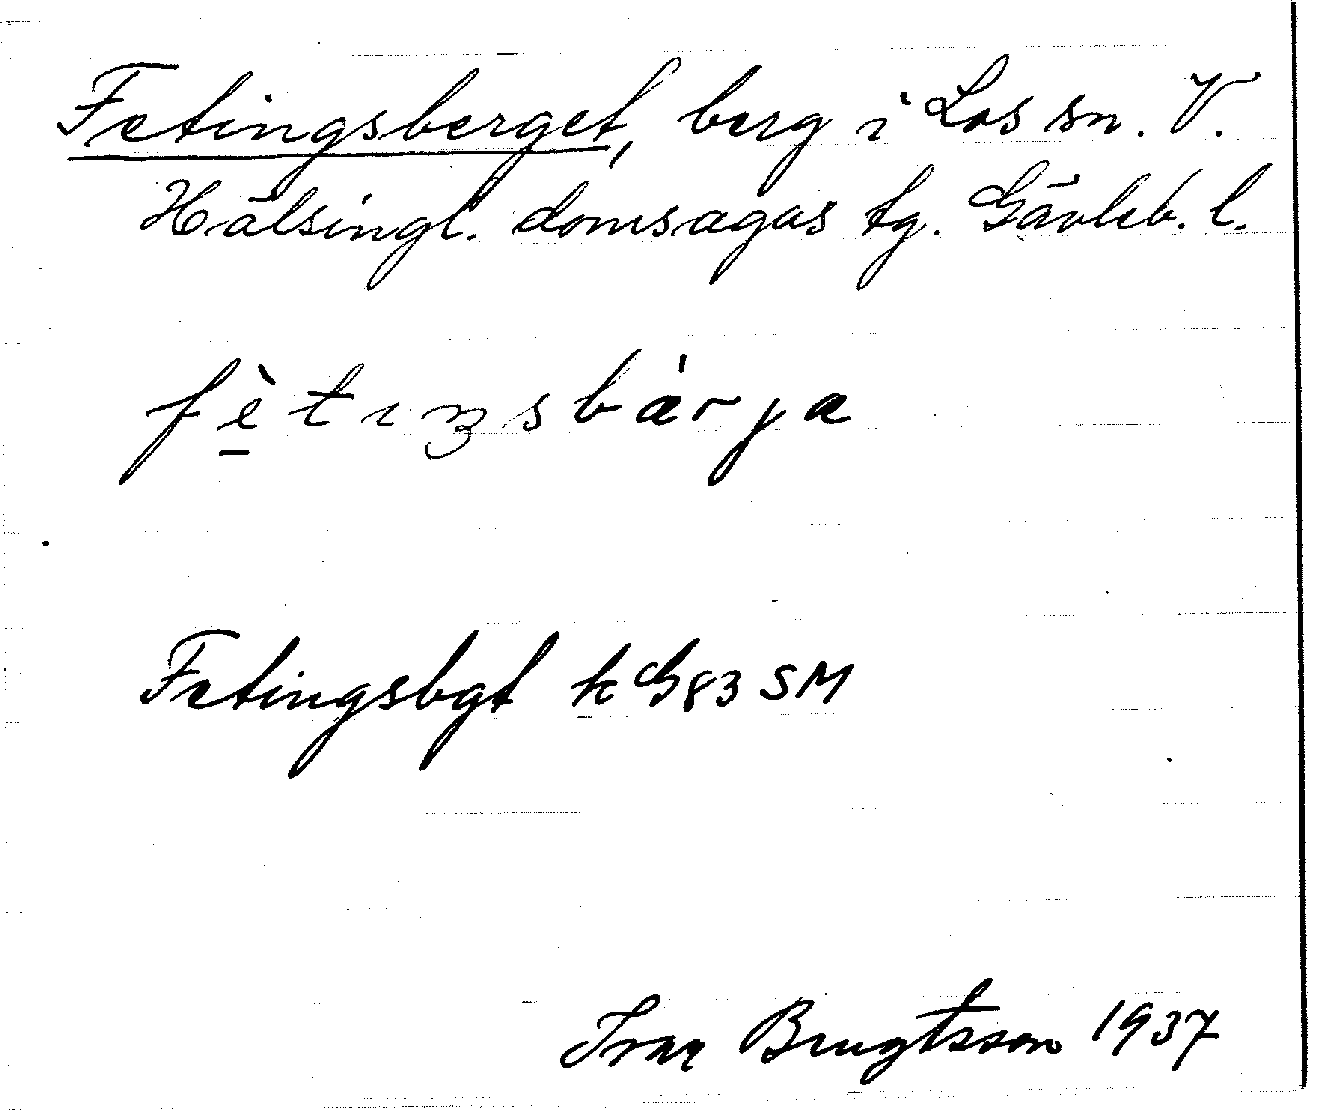 Fetingsberget, berg i Los sn. V.
Hälsingl. domsagas tg. Gävleb. l.
fè̱tıŋsbárja
Fetingsbgt k G83 SM
Ivar Bengtsson 1937